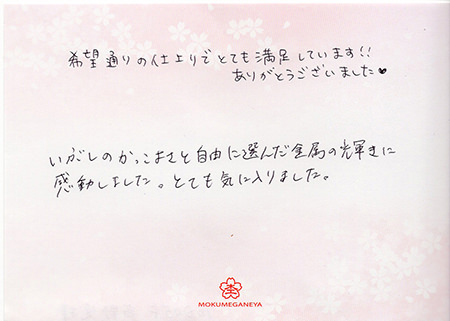 希望通りの仕上りでとても満足しています!!
ありがとうございました♥
いがしのかっこよさと自由に選んだ金属の輝きに
感動しました。とても気に入りました。
MOKUMEGANEYA